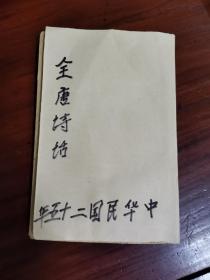 全唐诗话
中华民国二十五年